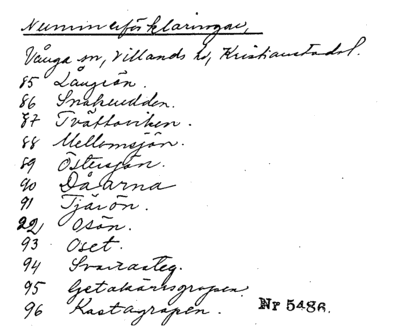 Nummerförklaringar,
Vånga sn, Villands hd, Kristianstads l.
85 Långön.
86 Snokeudden.
87 Tvättaviken.
88 Mellomsjön.
89 Östersjön.
90 Dåarna
91 Tjärön.
92 Osön.
93 Oset.
94
95 Getakärrsgropen
96 Kastagropen.
Nr 5486.